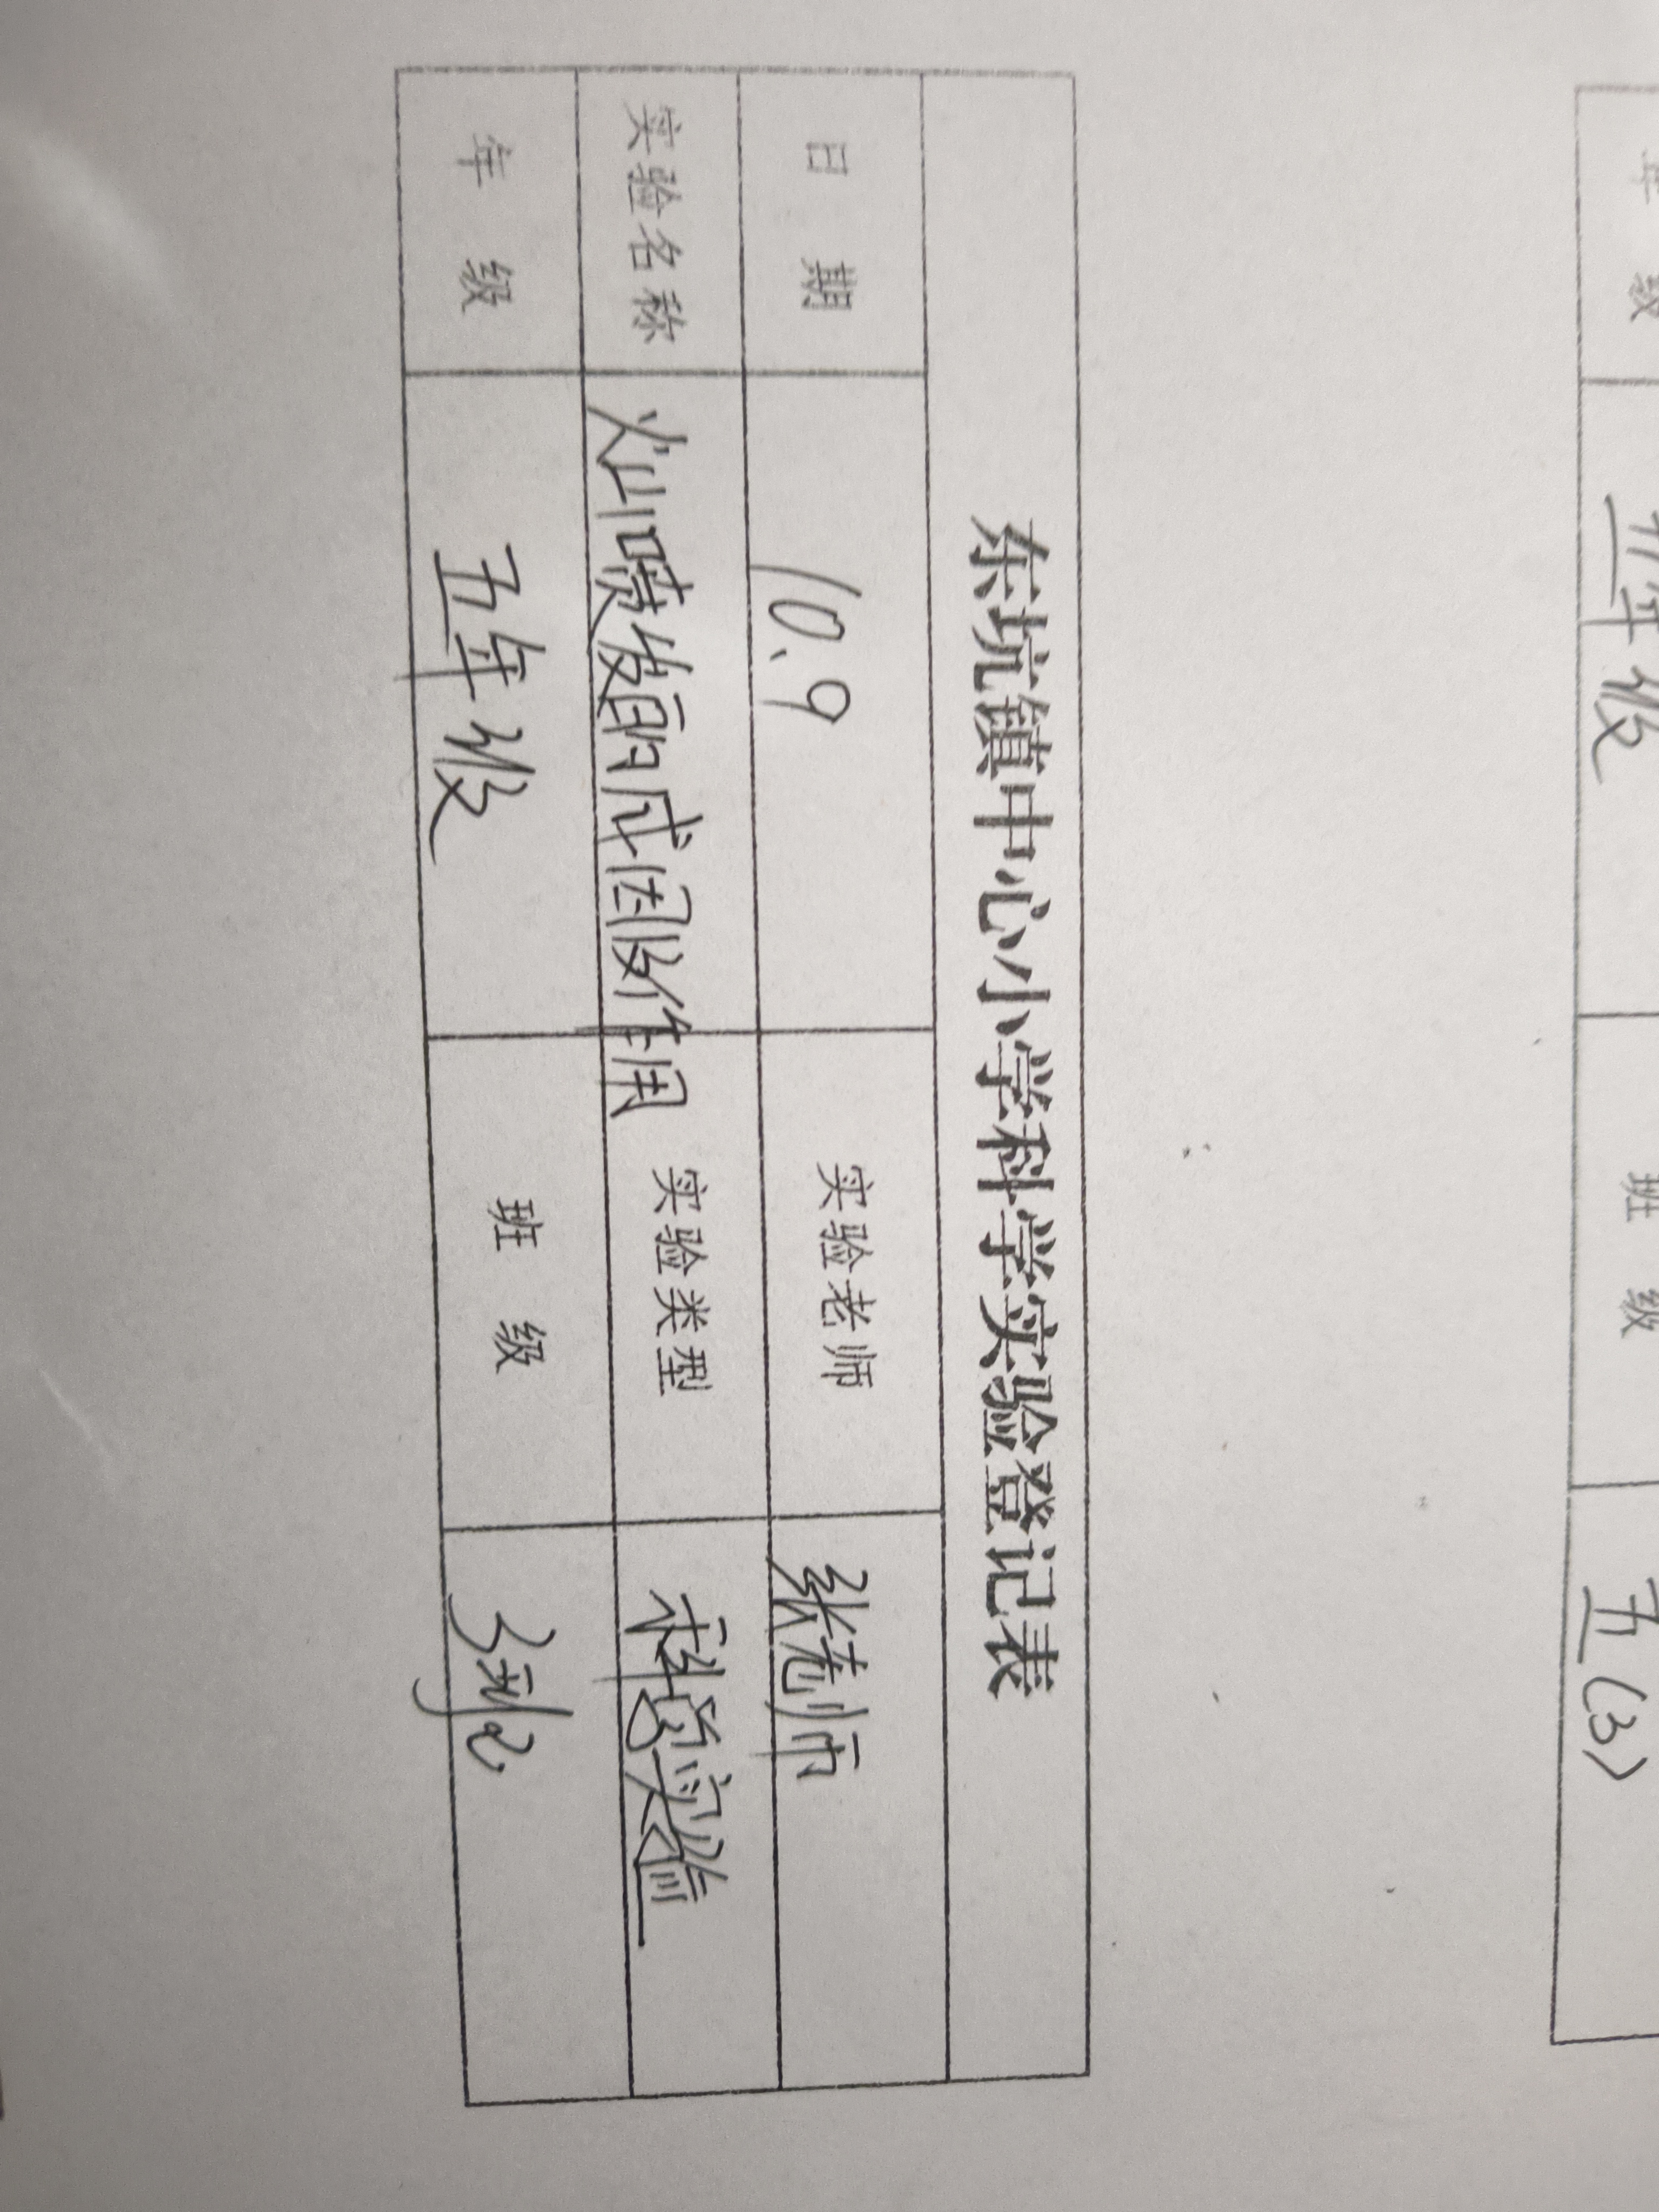 年 级 五年级 班 级 五(3)
东坑镇中心小学科学实验登记表
日 期 10.9 实验老师 张老师
实验名称 火山喷发的成因及作用 实验类型 科学实验
年 级 五年级 班 级 3班